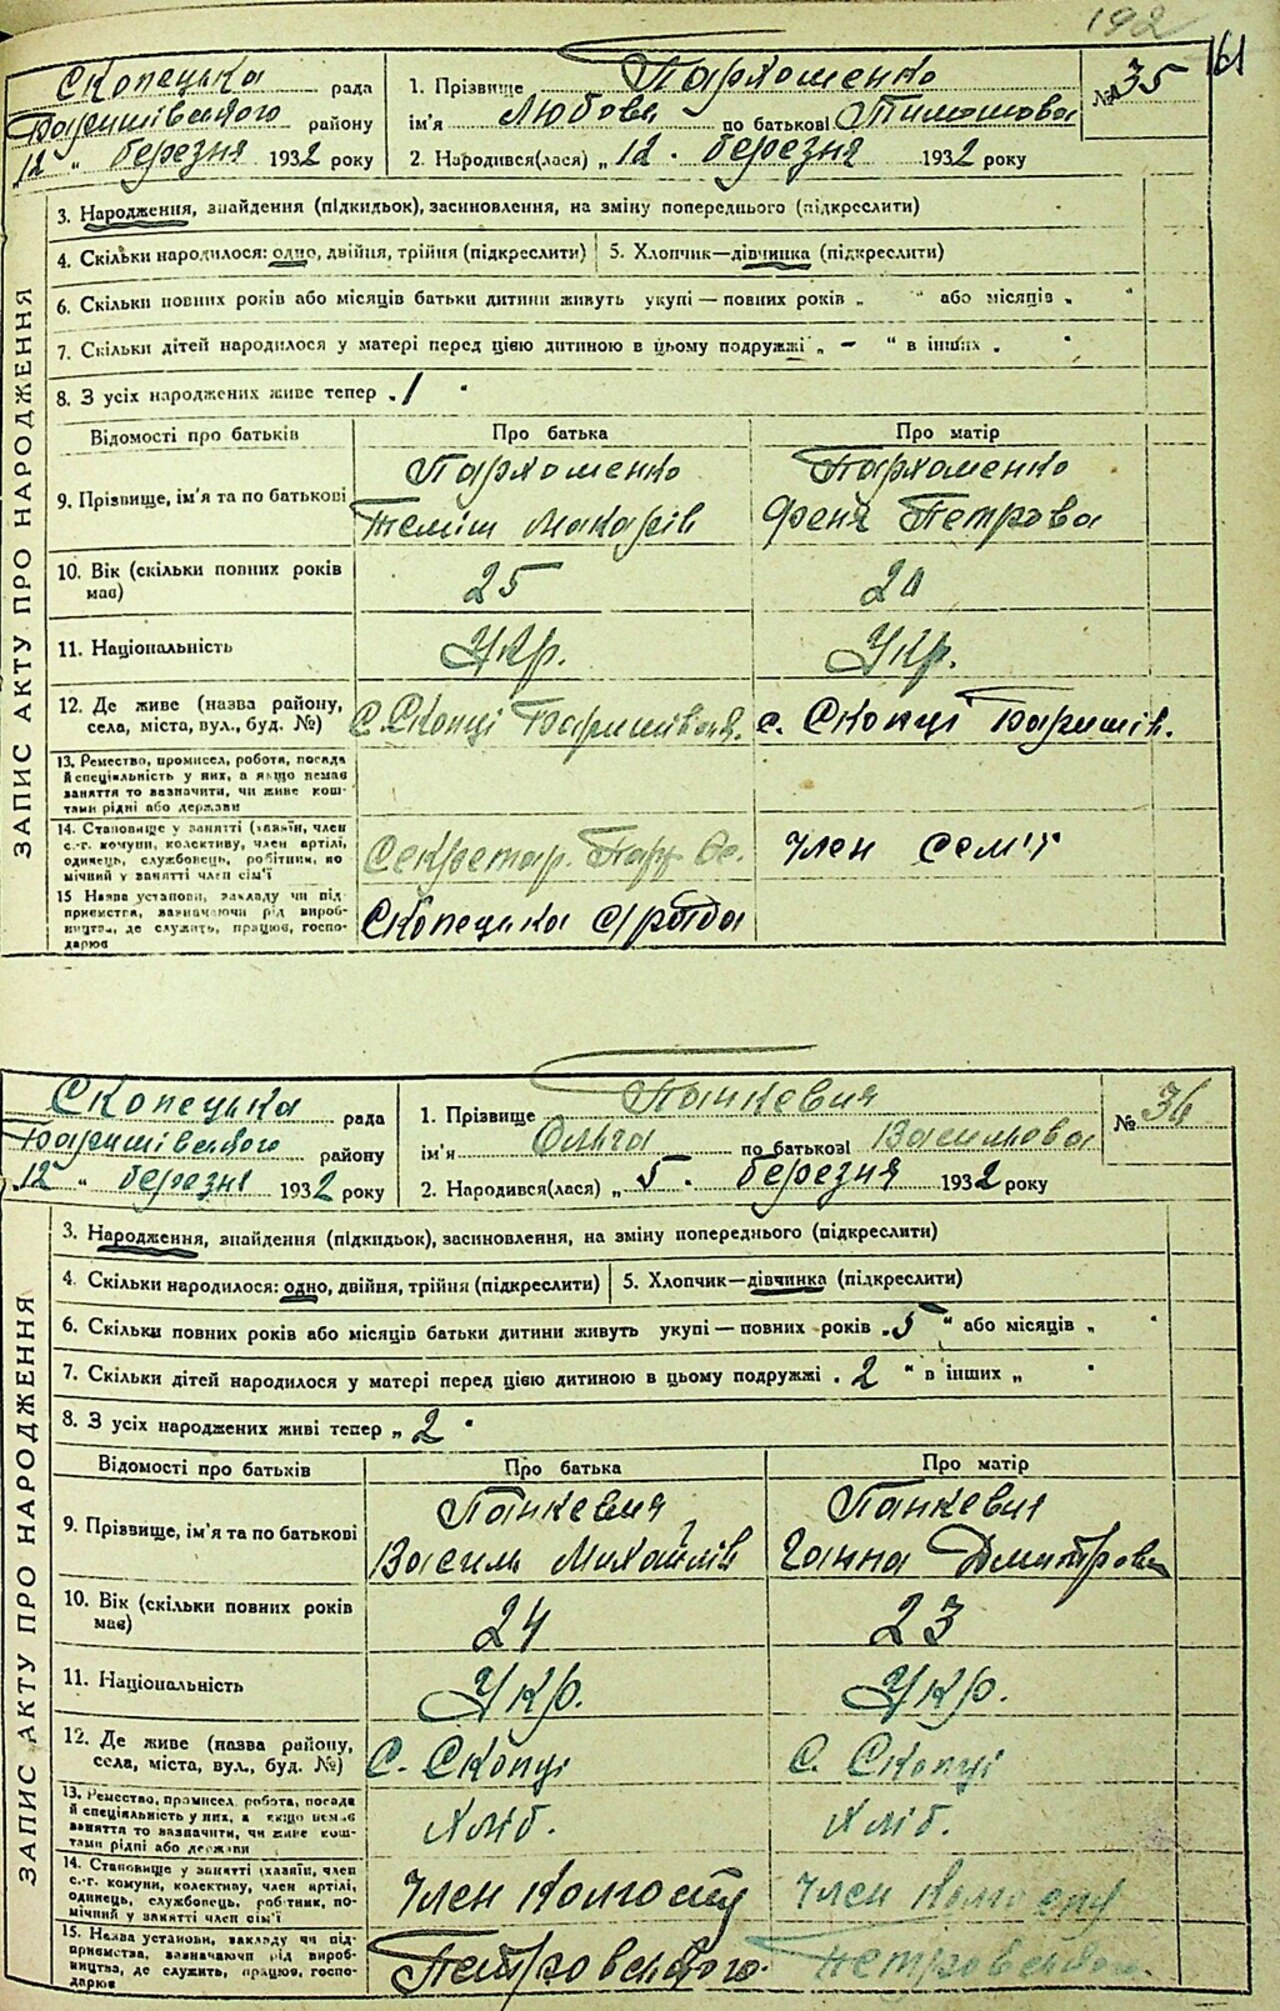 192
161
Скопецька рада
Баришівського району
„12 " березня 1932 року
1. Прізвище Пархоменко
ім'я Любовь по батькові Тимошова
2. Народився(лася) „ 12 . березня 1932 року
№ 35
ЗАПИС АКТУ ПРО НАРОДЖЕННЯ
3. Народження, знайдення (підкидьок), засиновлення, на зміну попереднього (підкреслити)
4. Скільки народилося: одно, двійня, трійня (підкреслити) 5. Хлопчик—дівчинка (підкреслити)
6. Скільки повних років або місяців батьки дитини живуть укупі — повних років „ " або місяців „ "
7. Скільки дітей народилося у матері перед цією дитиною в цьому подружжі „ — " в інших „ "
8. З усіх народжених живе тепер „ 1 "
Відомості про батьків Про батька Про матір
9. Прізвище, ім'я та по батькові
Пархоменко Пархоменко
Теміш Макарів Феня Петрова
10. Вік (скільки повних років має) 25 20
11. Національність Укр. Укр.
12. Де живе (назва району, села, міста, вул., буд. №)
с. Скопці Баришівськ. с. Скопці Баришів.
13. Ремество, промисел, робота, посада
й спеціяльність у них, а якщо немає
заняття то вазначити, чи живе кош-
тами рідні або держави
14. Становище у занятті (хазяїн, член
с.-г. комуни, колективу, член артілі,
одинець, службовець, робітник, по
мічний у занятті член сім'ї
Секретар. Член сем'ї
15 Назва установи, закладу чи під-
приємства, вазначаючи рід вироб-
ництва, де служить, працює, госпо-
дарює
Скопецька с/рада
Скопецька рада
Баришівського району
„12 " березня 1932 року
1. Прізвище Панкевич
ім'я Ольга по батькові Васильова
2. Народився(лася) „ 5 . березня 1932 року
№ 36
ЗАПИС АКТУ ПРО НАРОДЖЕННЯ
3. Народження, знайдення (підкидьок), засиновлення, на зміну попереднього (підкреслити)
4. Скільки народилося: одно, двійня, трійня (підкреслити) 5. Хлопчик—дівчинка (підкреслити)
6. Скільки повних років або місяців батьки дитини живуть укупі — повних років „ 5 " або місяців „ "
7. Скільки дітей народилося у матері перед цією дитиною в цьому подружжі „ 2 " в інших „ "
8. З усіх народжених живі тепер „ 2 "
Відомості про батьків Про батька Про матір
9. Прізвище, ім'я та по батькові
Панкевич Панкевич
Василь Михайлів Ганна Дмитрова
10. Вік (скільки повних років має) 24 23
11. Національність Укр. Укр.
12. Де живе (назва району, села, міста, вул., буд. №)
с. Скопці с. Скопці
13. Ремество, промисел, робота, посада
й спеціяльність у них, а якщо немає
заняття то вазначити, чи живе кош-
тами рідні або держави
Хліб. Хліб.
14. Становище у занятті (хазяїн, член
с.-г. комуни, колективу, член артілі,
одинець, службовець, робітник, по-
мічний у занятті член сім'ї
Член колгоспу Член колгоспу
15. Назва установи, закладу чи під-
приємства, вазначаючи рід вироб-
ництва, де служить, працює, госпо-
дарює
Петровського. Петровського.